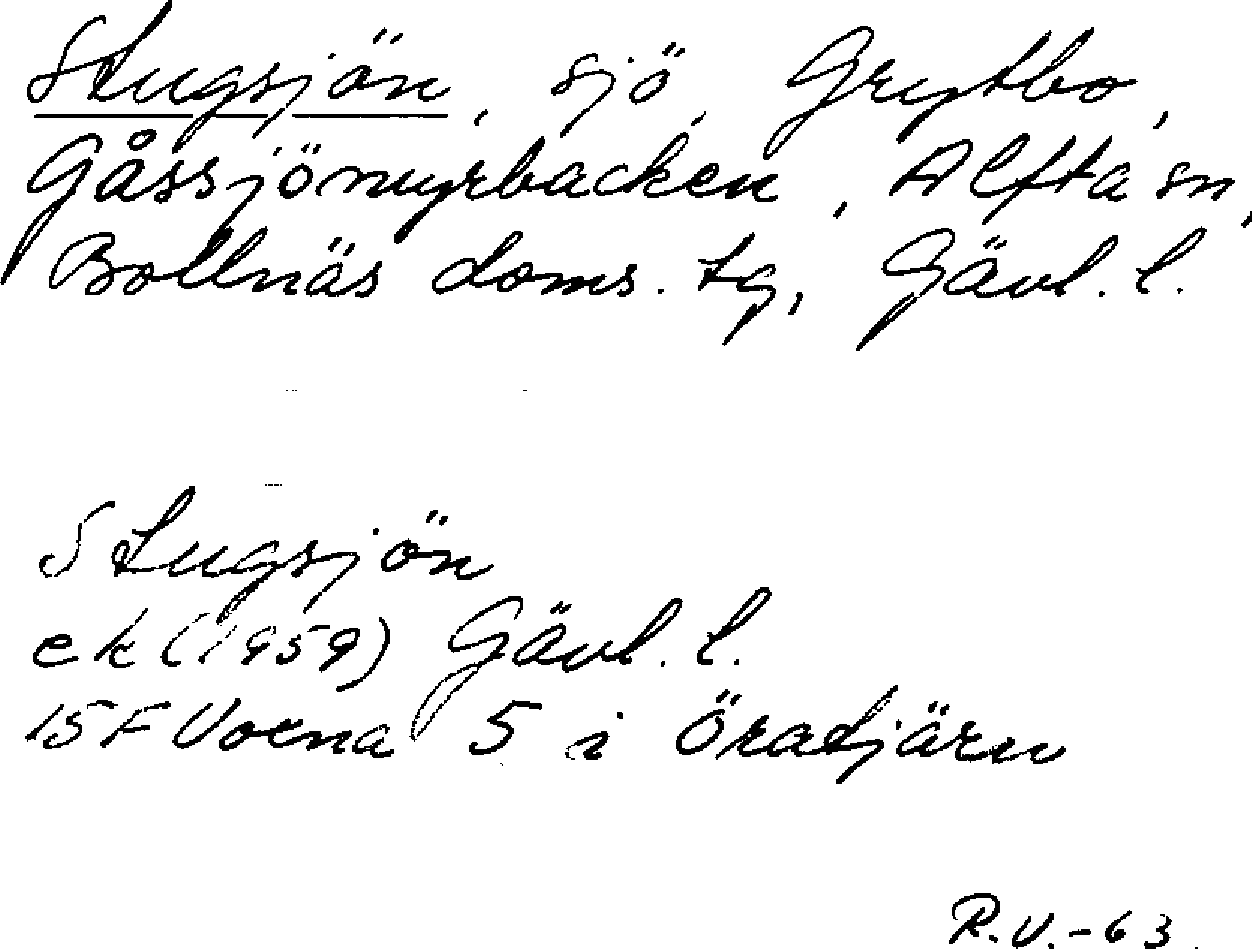 Stugsjön, sjö, Grytbo,
Gåssjömyrbacken, Alfta sn,
Bollnäs doms. tg, Gävl. l.
Stugsjön
ek (1959) Gävl. l.
15F Voxna 5 i Öratjärn
R.V.-63